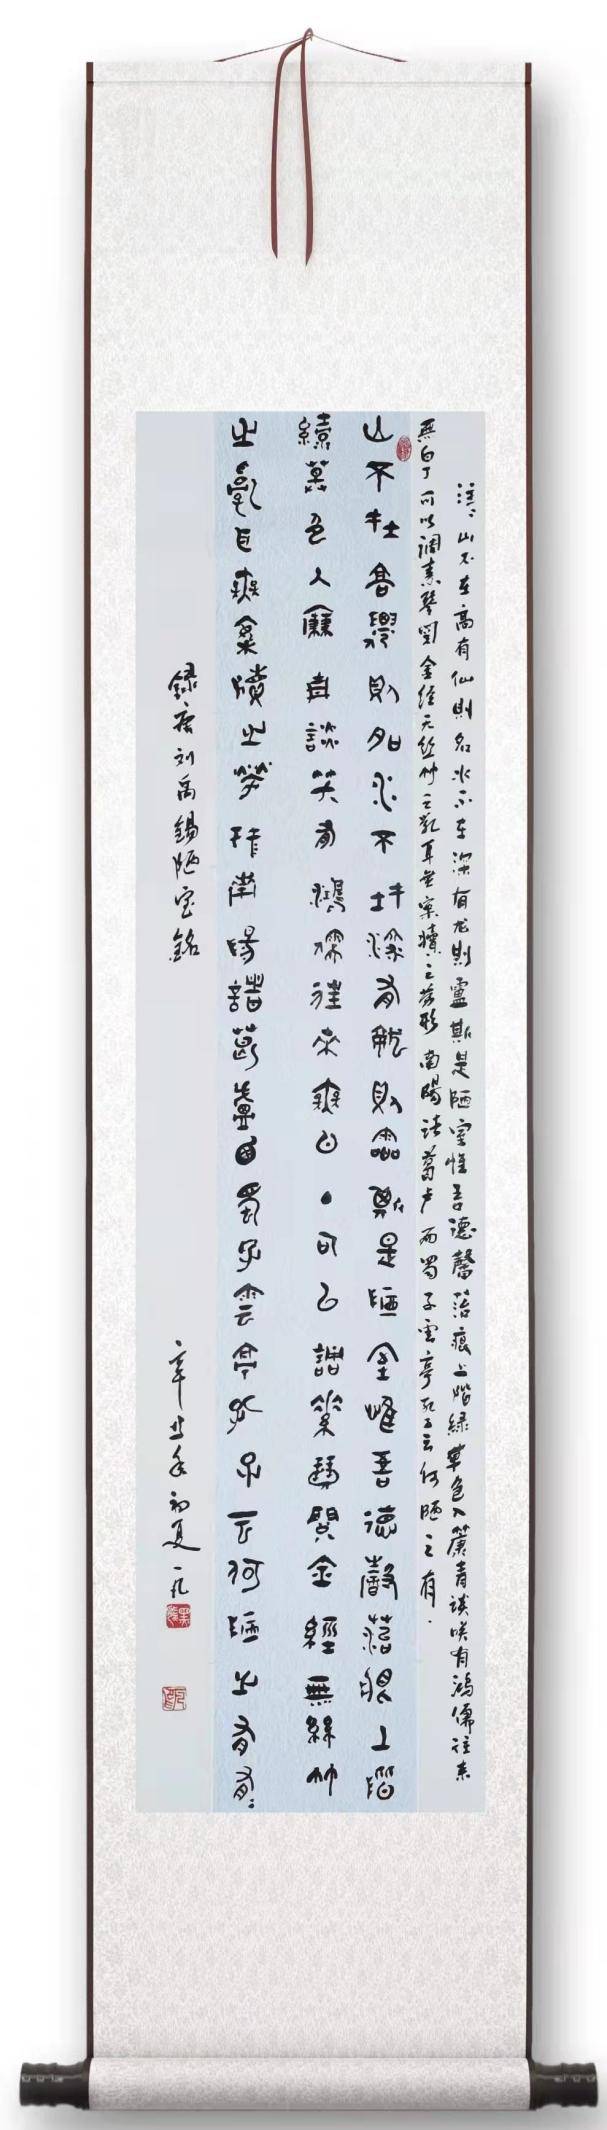 注、山不在高有仙則名水不在深有龙則靈斯是陋室惟吾德馨苔痕上階緑草色入簾青談咲有鴻儒往来
無白丁可以調素琴閲金经无丝竹之乱耳無案牘之劳形南陽诸葛卢西蜀子雲亭孔子云何陋之有
山不在高僊則名水不在深有龍則靈斯是陋室唯吾德馨苔痕上階
緑草色入簾青談笑有鴻儒往來無白丁可以調素琴閲金經無絲竹
之亂耳無案牘之勞形南陽諸葛廬西蜀子雲亭孔子云何陋之有有
録唐刘禹錫陋室銘
辛丑年初夏一凡